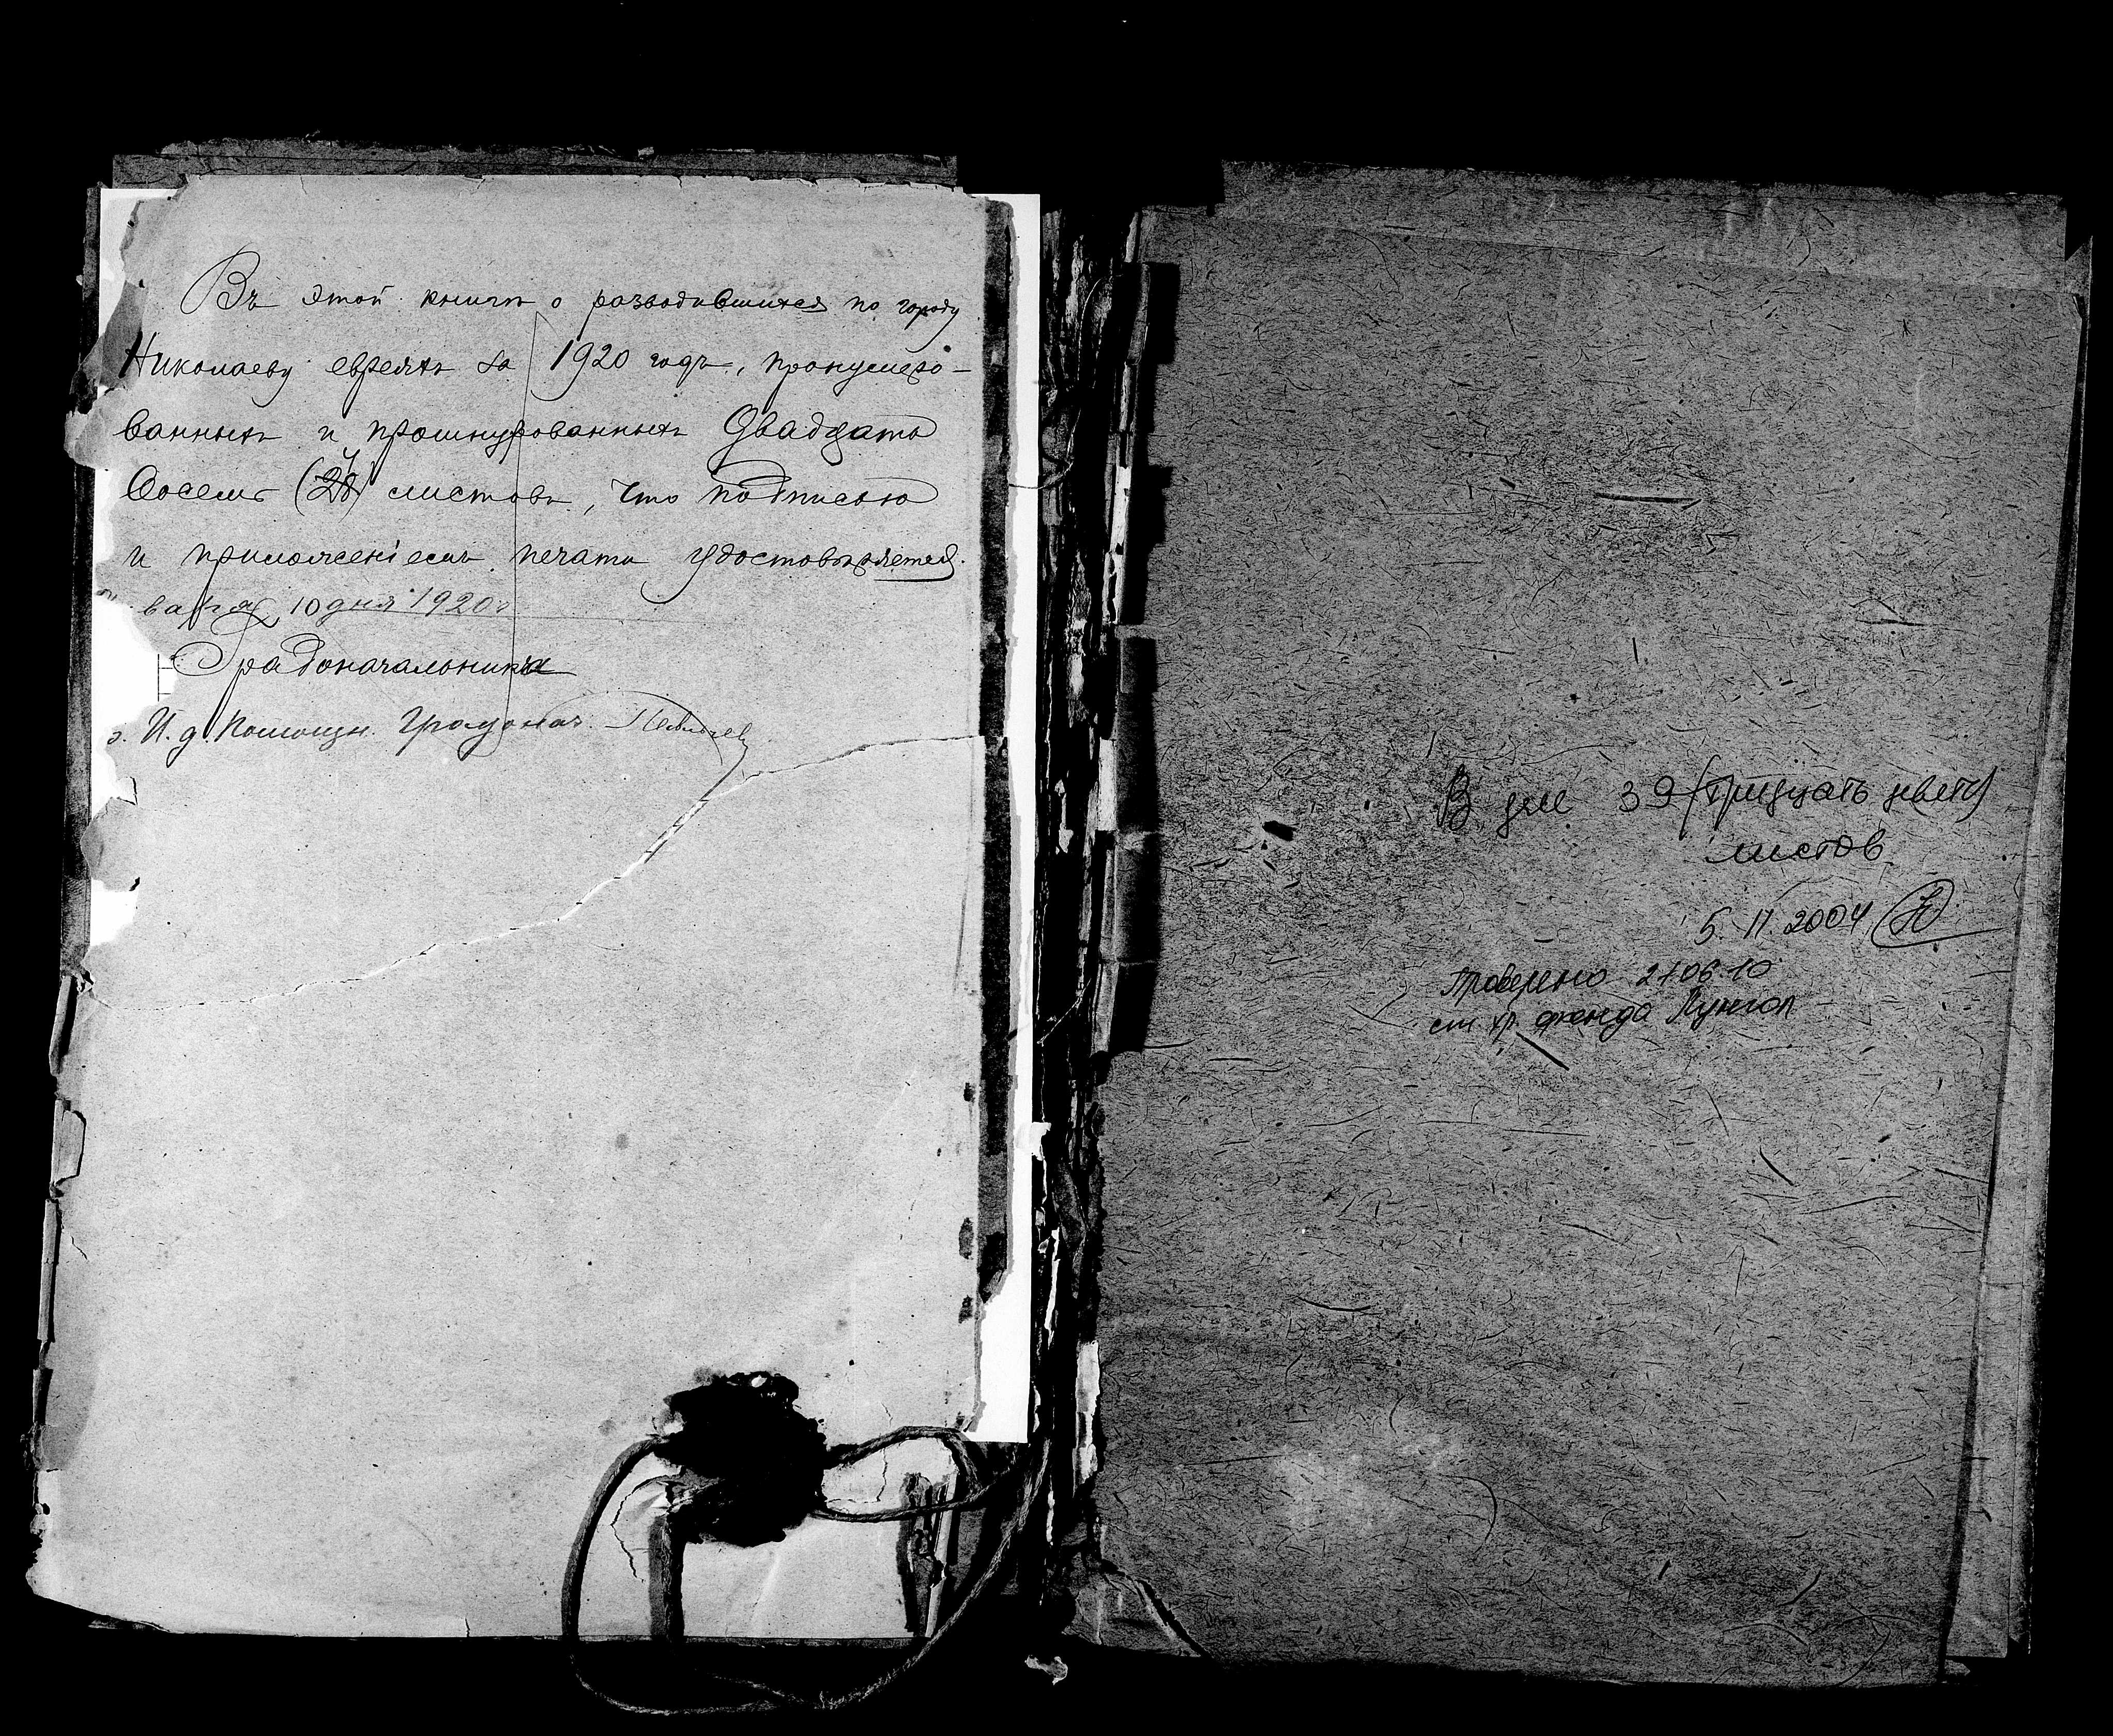 Въ этой книгѣ о разводившихся по городу
Николаеву евреяхъ за 1920 годъ, пронумеро-
ванныхъ и прошнурованныхъ Двадцать
Восемь (28) листовъ, что подписью
и приложеніемъ печати удостовѣряется.
варя 10 дня 1920 г
Градоначальника
И. д. Помощн. Градонач.
В деле 39 (тридцать девять)
листов
5. 11. 2004
Проверено 21.06.10
ст. хр. фонда